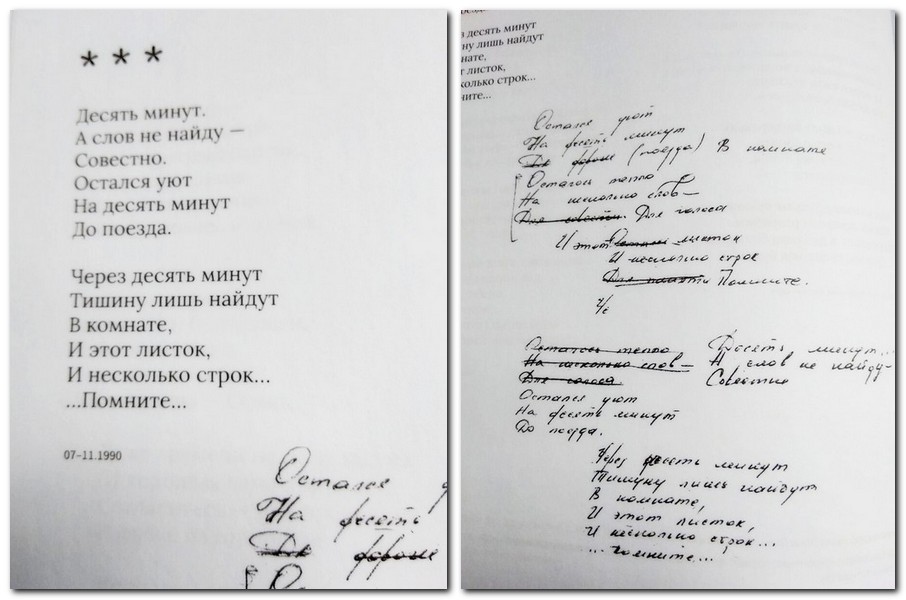 * * *
Десять минут.
А слов не найду —
Совестно.
Остался уют
На десять минут
До поезда.
Через десять минут
Тишину лишь найдут
В комнате,
И этот листок,
И несколько строк...
...Помните...
07–11.1990
Остался
На десять
з десять минут
ну лишь найдут
нате,
т листок,
колько строк...
ните...
Остался уют
На десять минут
(поезда) В комнате
Осталось тепло
На несколько слов—
Для совести. Для голоса
И этот листок
И несколько строк
Для памяти Помните.
Че
Осталось тепло
На несколько слов—
Для голоса
Десять минут...
А слов не найду-
Совестно
Остался уют
На десять минут
До поезда.
Через десять минут
Тишину лишь найдут
В комнате,
И этот листок,
И несколько строк...
...Помните...